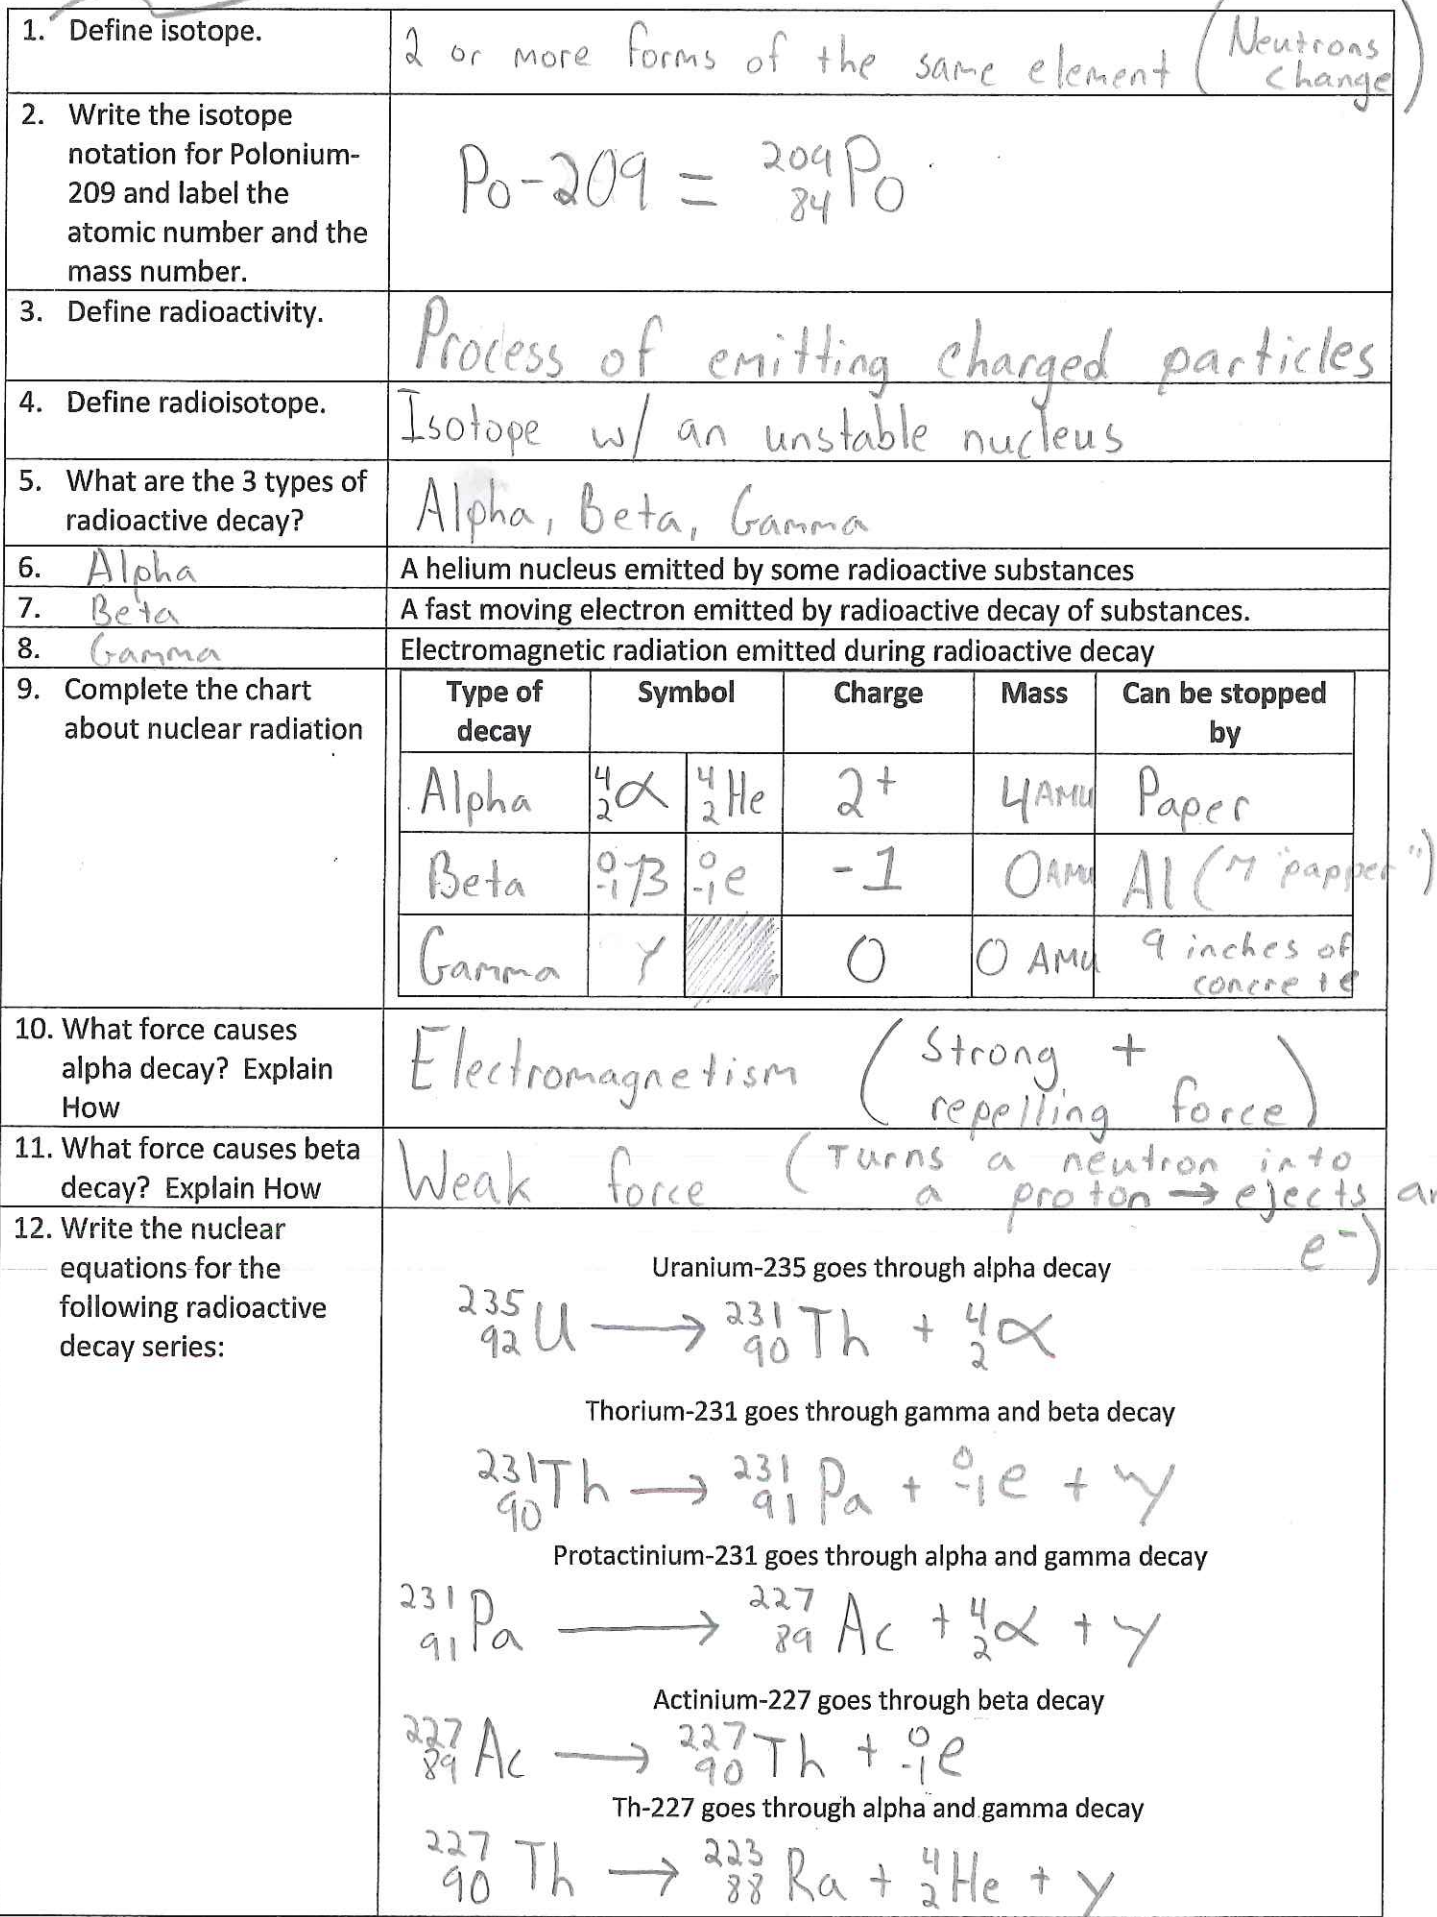 1. Define isotope.
2 or more forms of the same element (Neutrons
change)
2. Write the isotope
notation for Polonium-
209 and label the
atomic number and the
mass number.
Po-209 = ²⁰⁹₈₄Po
3. Define radioactivity.
Process of emitting charged particles
4. Define radioisotope.
Isotope w/ an unstable nucleus
5. What are the 3 types of
radioactive decay?
Alpha, Beta, Gamma
6. Alpha A helium nucleus emitted by some radioactive substances
7. Beta A fast moving electron emitted by radioactive decay of substances.
8. Gamma Electromagnetic radiation emitted during radioactive decay
9. Complete the chart
about nuclear radiation
Type of decay Symbol Charge Mass Can be stopped by
Alpha ⁴₂α ⁴₂He 2+ 4 AMU Paper
Beta ⁰₋₁β ⁰₋₁e -1 0 AMU Al ( "papper")
Gamma γ 0 0 AMU 9 inches of
concrete
10. What force causes
alpha decay? Explain
How
Electromagnetism (Strong +
repelling force)
11. What force causes beta
decay? Explain How
Weak force (Turns a neutron into
a proton → ejects an
e⁻)
12. Write the nuclear
equations for the
following radioactive
decay series:
Uranium-235 goes through alpha decay
²³⁵₉₂U → ²³¹₉₀Th + ⁴₂α
Thorium-231 goes through gamma and beta decay
²³¹₉₀Th → ²³¹₉₁Pa + ⁰₋₁e + γ
Protactinium-231 goes through alpha and gamma decay
²³¹₉₁Pa → ²²⁷₈₉Ac + ⁴₂α + γ
Actinium-227 goes through beta decay
²²⁷₈₉Ac → ²²⁷₉₀Th + ⁰₋₁e
Th-227 goes through alpha and gamma decay
²²⁷₉₀Th → ²²³₈₈Ra + ⁴₂He + γ